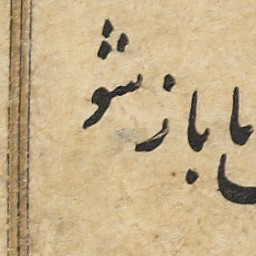 با باز شو